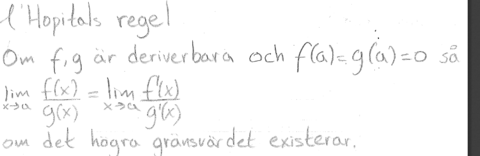 l'Hopitals regel
Om f,g är deriverbara och f(a)=g(a)=0 så
lim x→a f(x)/g(x) = lim x→a f'(x)/g'(x)
om det högra gränsvärdet existerar.